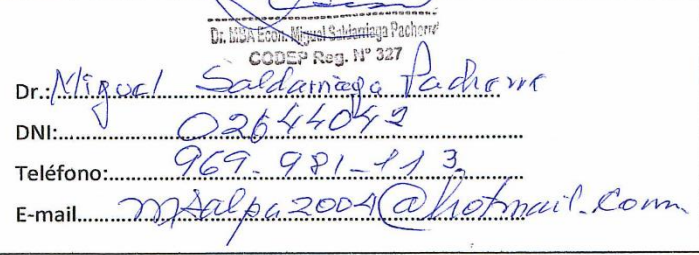 Dr. MBA Econ. Miguel Saldarriaga Pacherre
CODEP Reg. N° 327
Dr.: Miguel Saldarriaga Pacherre
DNI: 02644042
Teléfono: 969-981-113
E-mail msalpa2004@hotmail.com